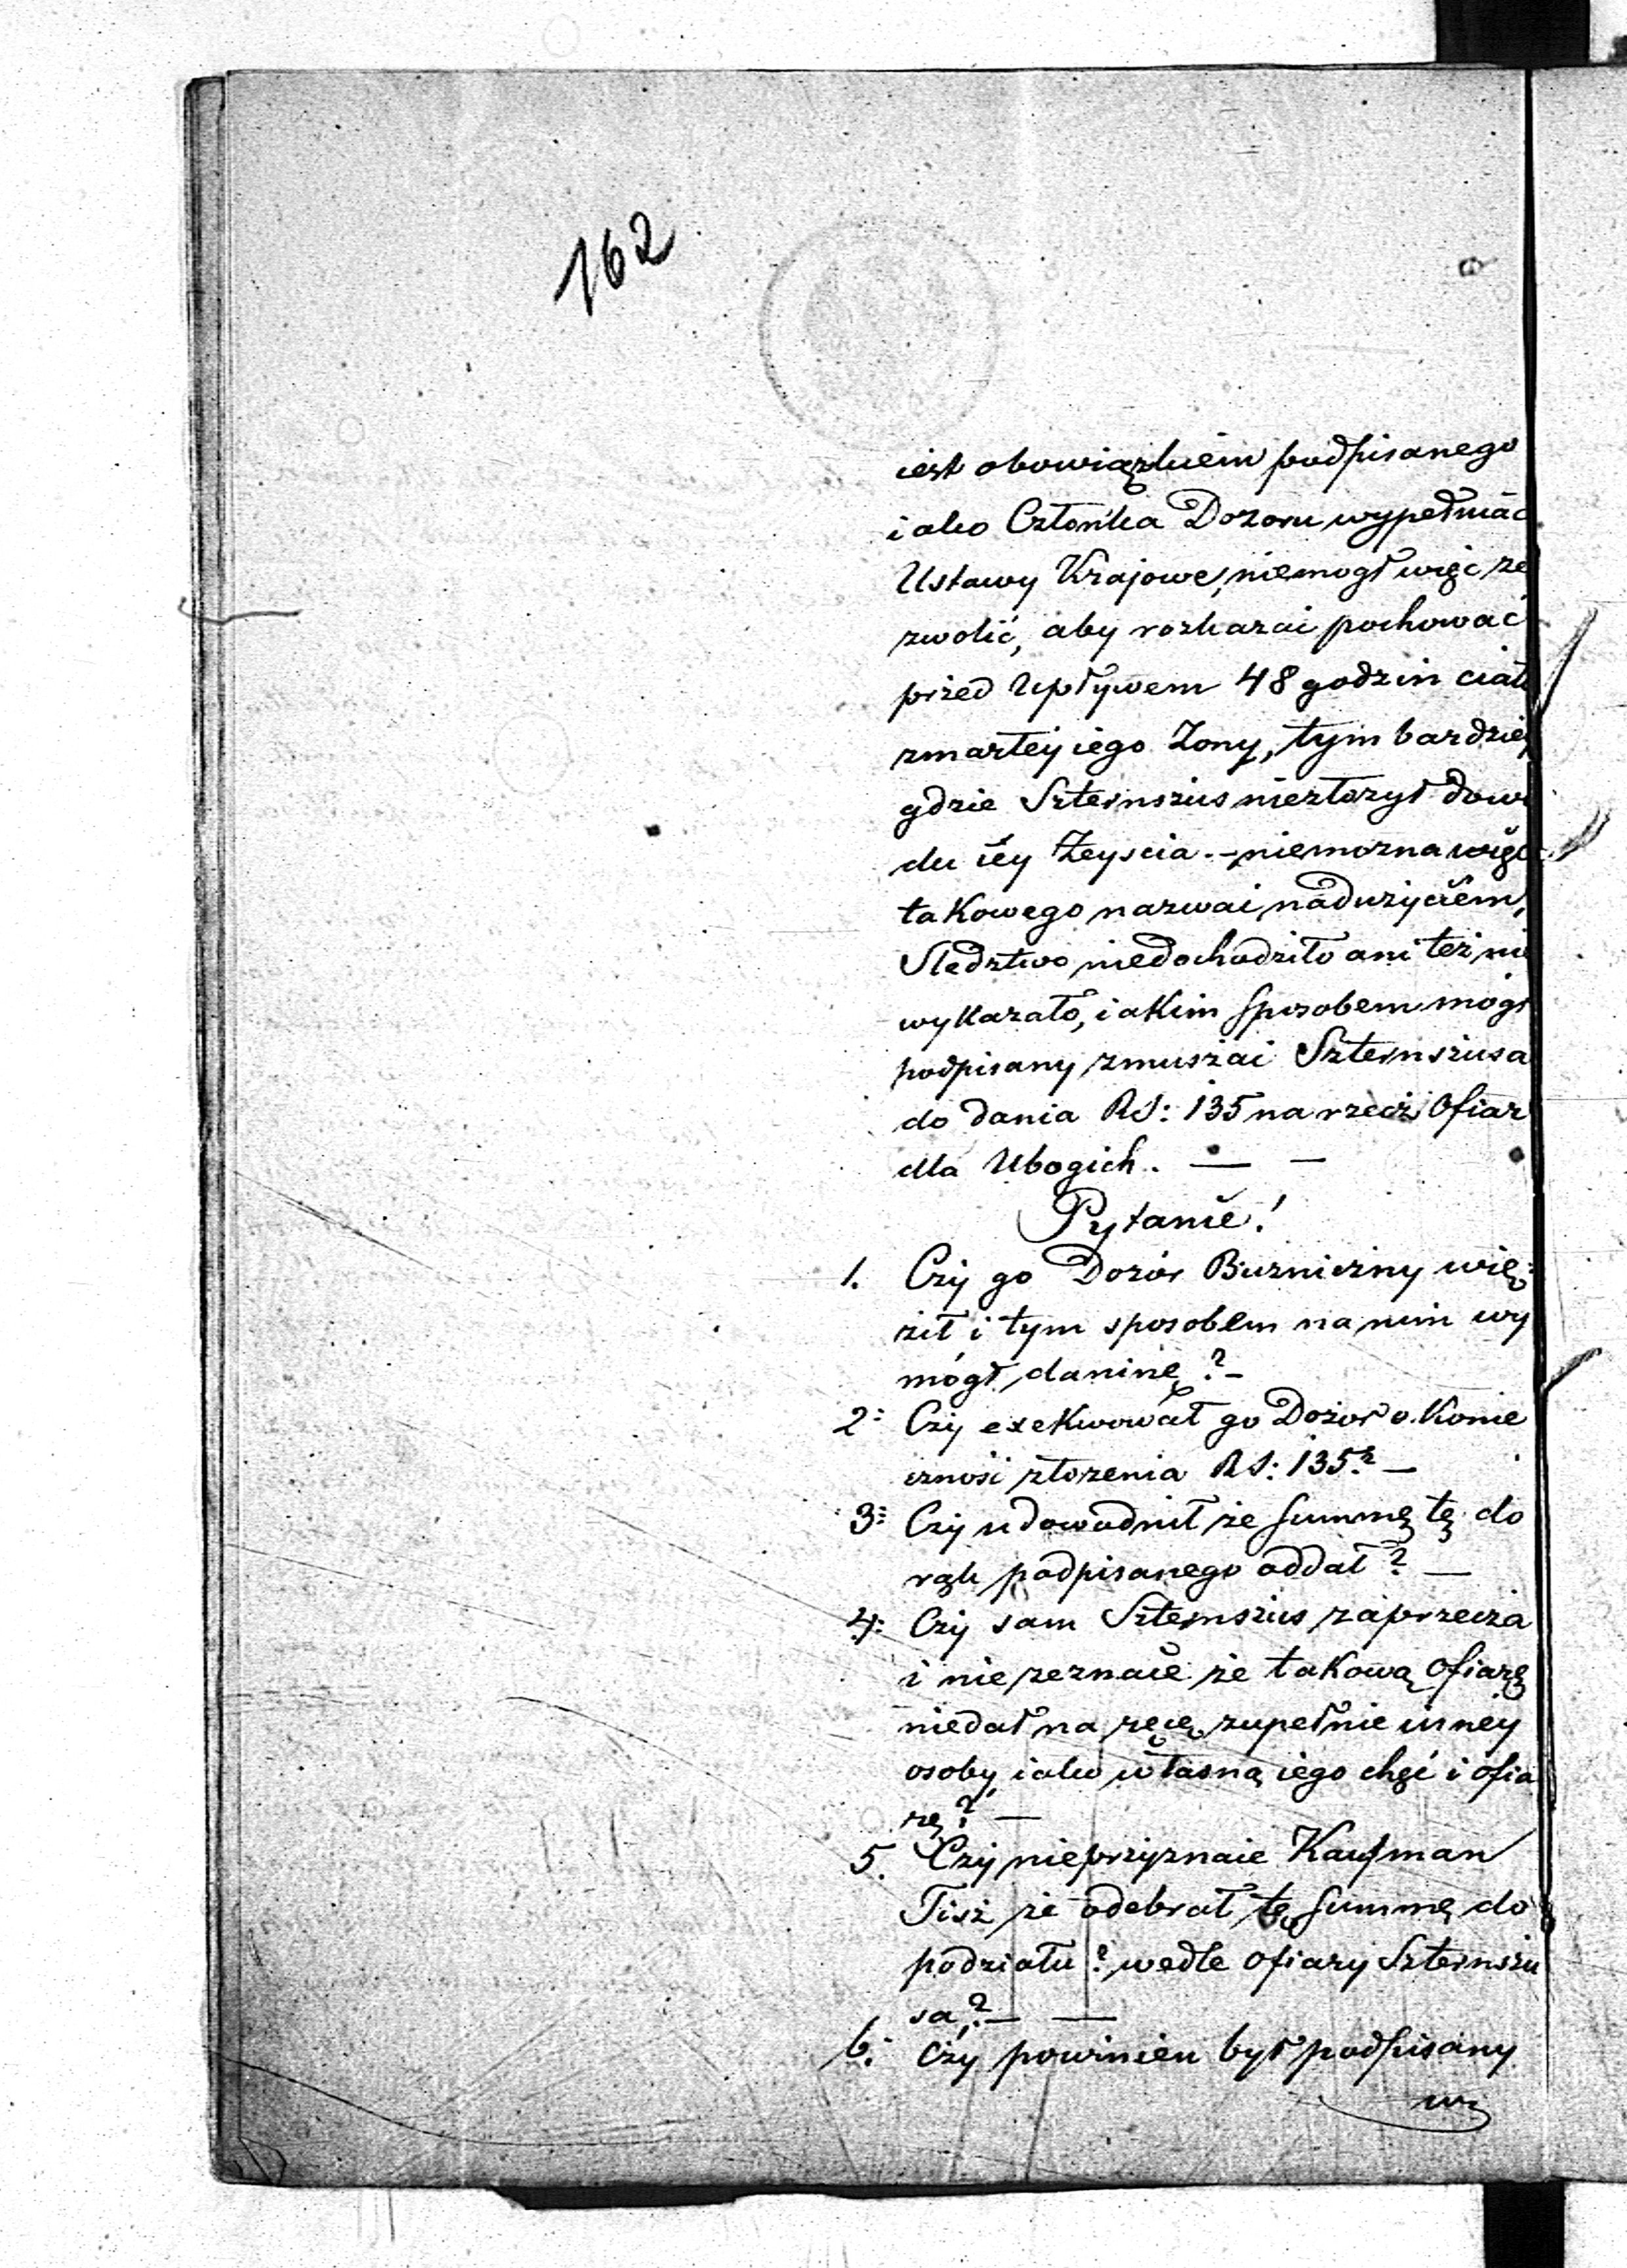 162
iest obowiązkiem podpisanego
iako Członka Dozoru wypełniać
Ustawy Krajowe, niemogł więc ze
zwolić, aby rozkazać pochować
przed Upływem 48 godzin ciał
zmarłey iego Zony, tym bardziey
gdzie Szternszus niezłozył dowo
du iey Zeyscia. - niemozna więc
takowego nazwać naduzyciem,
Sledztwo niedochodziło ani też nie
wykazało, iakim sposobem mógł
podpisany zmuszać Szternszusa
do dania RS: 135 na rzecz Ofiar
dla Ubogich. — —
Pytanie!
1. Czy go Dozór Buzniczny wię=
ził i tym sposobem na nim wy
mógł daninę? -
2: Czy exekwował go Dozór o Konie
czności złozenia RS: 135? —
3: Czy udowodnił że Summę tę do
rąk podpisanego oddał? —
4: Czy sam Szternszus zaprzecza
i nie zeznaie że takową Ofiarę
niedał na ręcę zupełnie inney
osoby iako własną iego chęć i ofia
rę? —
5. Czy nieprzyznaie Kaufman
Tisz że odebrał tę Summę do
podziału? wedle Ofiary Szternszu
sa? — —
6. Czy powinien był podpisany